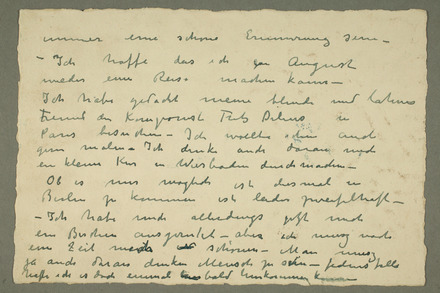 immer eine schöne Erinnerung sein –
– Ich hoffe das ich in August
wieder eine Reise machen kann –
Ich habe gedacht meine blinde und lahme
Freund den Komponist Fritz Delius in
Paris besuchen – Ich wollte ihm auch
gern malen – Ich denke auch daran noch
eine kleine Kur in Wiesbaden durchmachen –
Ob es mir möglich ist diesmal in
Berlin zu kommen ist leider zweifelhaft –
– Ich habe mich allerdings jetzt noch
ein Bischen ausgeruht – aber ich muss noch
eine Zeit mich schonen – Man muss
ja auch daran denken Mensch zu sein – jedenfalls
hoffe ich es doch einmal bald hinkommen kann –